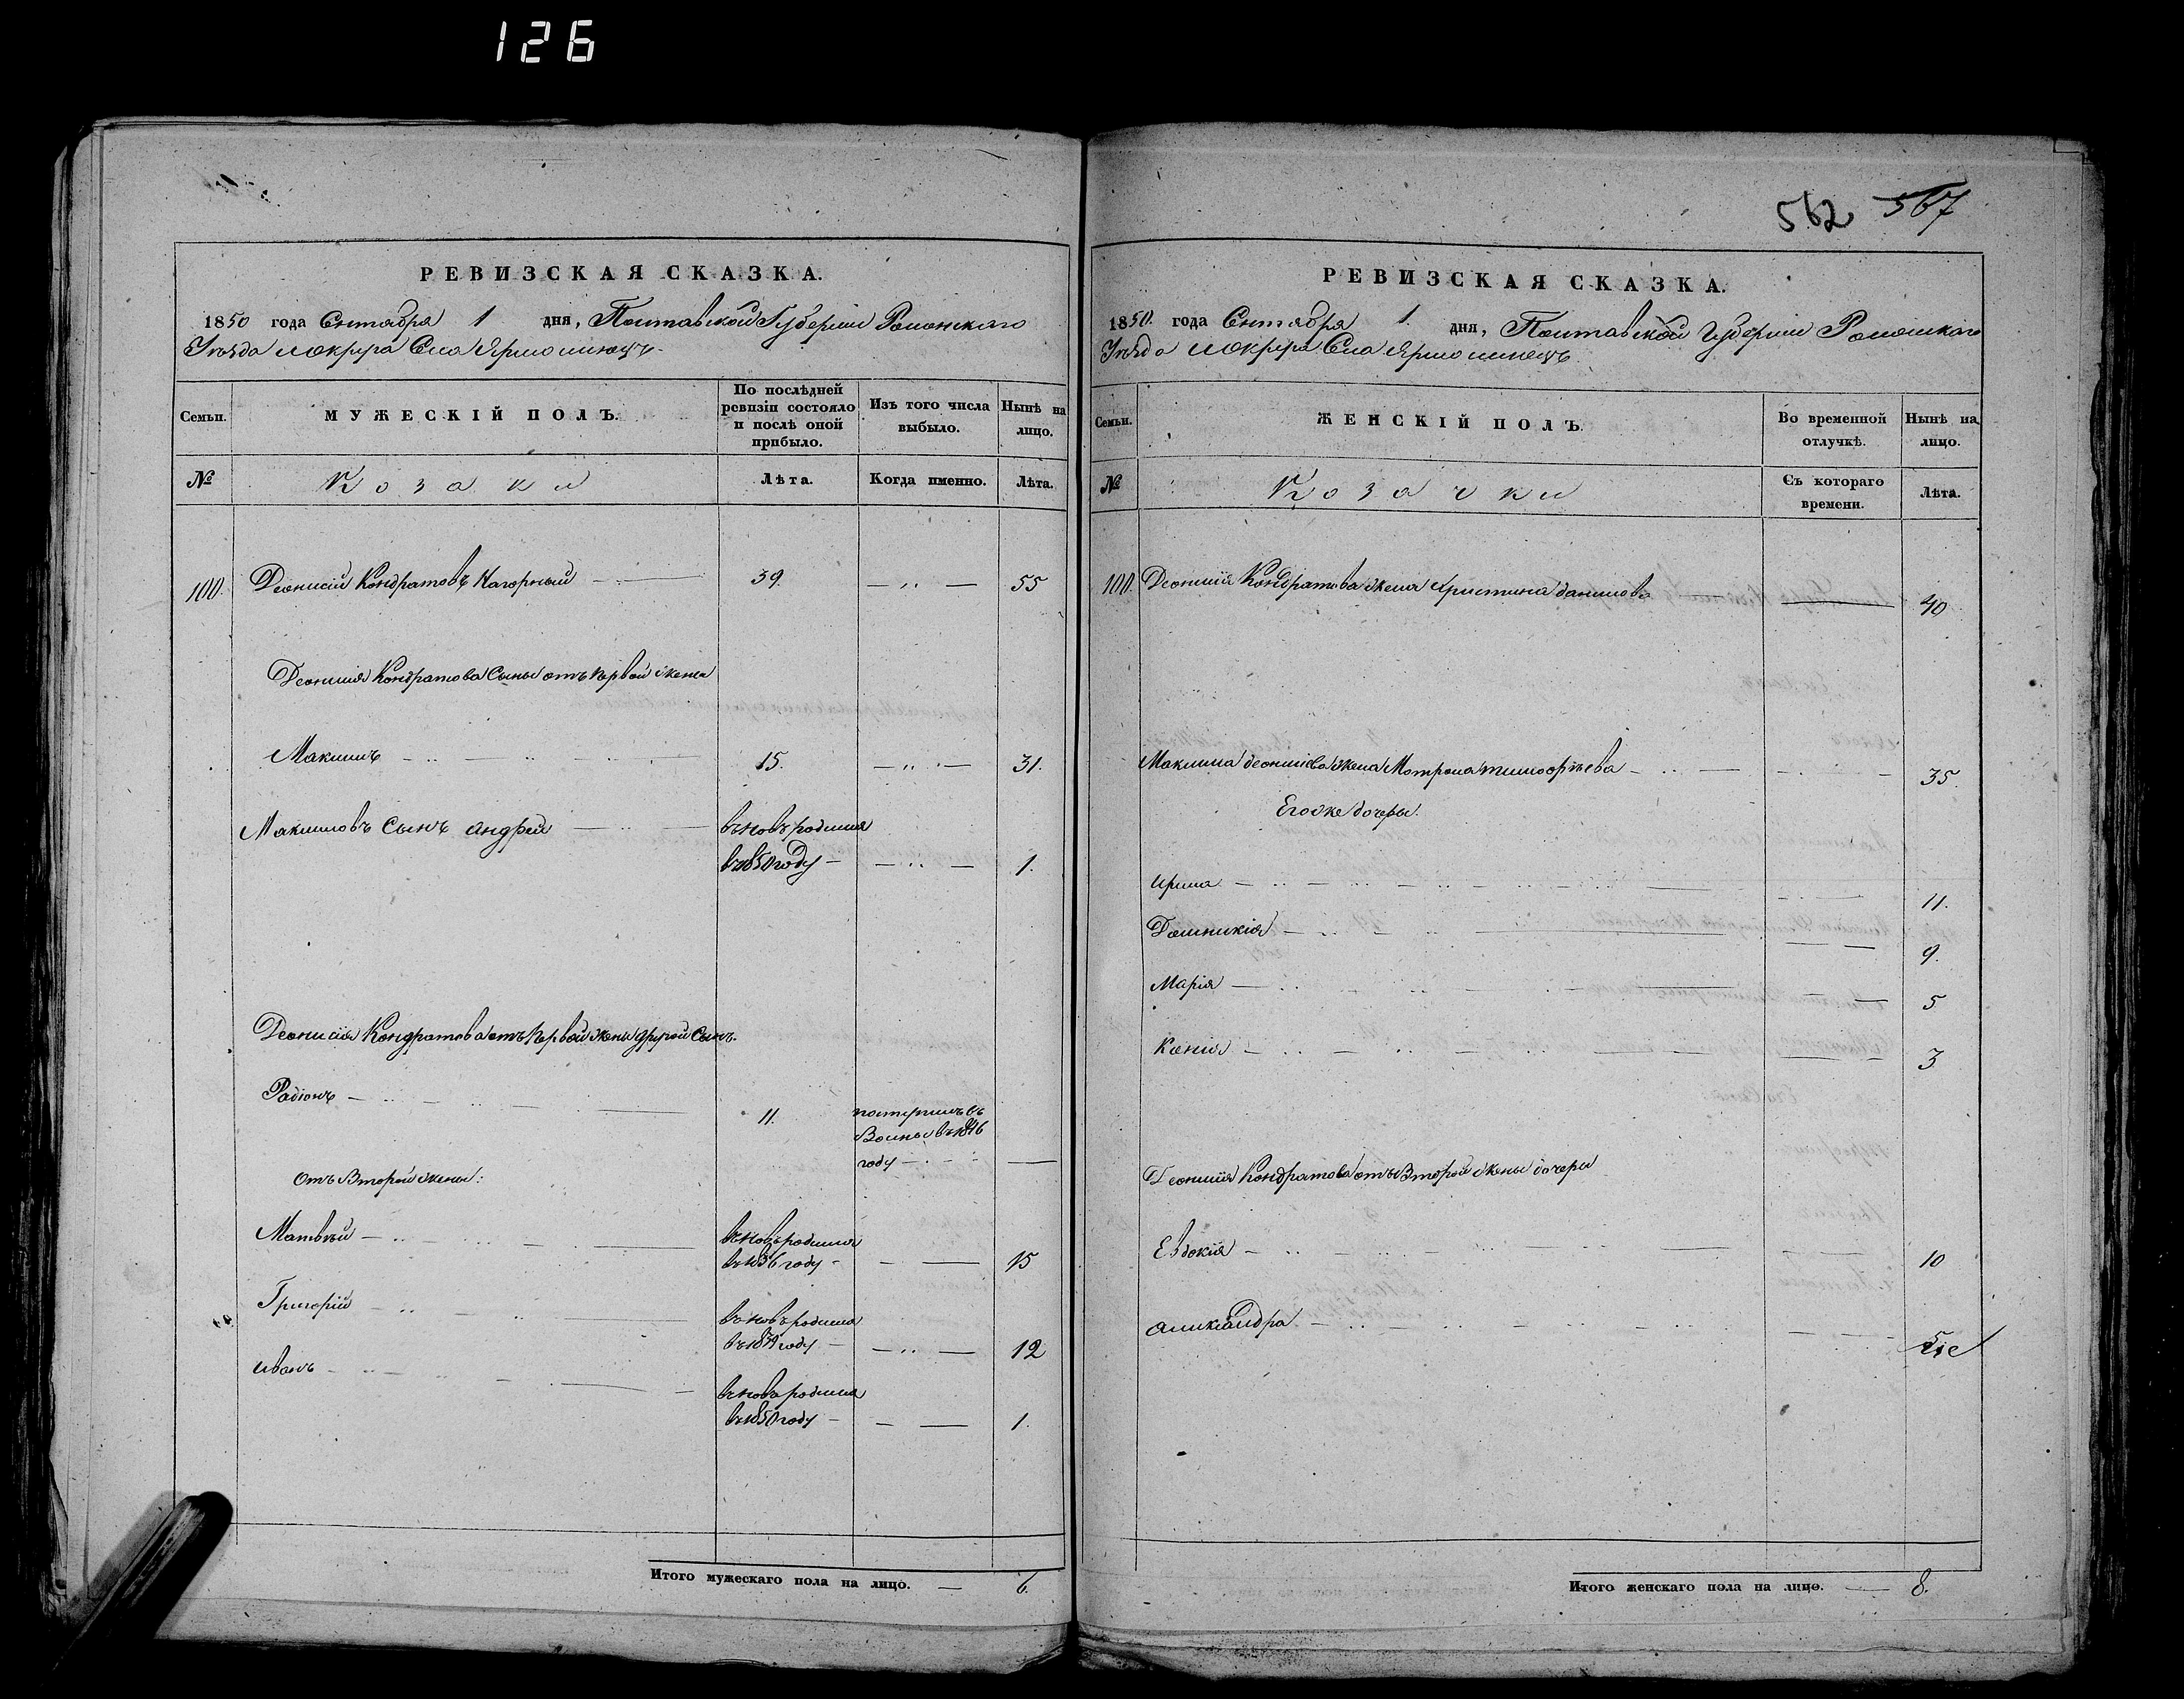 126
562 567
РЕВИЗСКАЯ СКАЗКА.
1850 года Сентября 1 дня, Полтавской Губернии Роменскаго
Уезда 2 округа Села Ярмолинецъ
Семьи. МУЖЕСКІЙ ПОЛЪ. По послѣдней ревизіи состояло и послѣ оной прибыло. Изъ того числа выбыло. Нынѣ на лицо.
№ Козаки Лѣта. Когда именно. Лѣта.
100. Деонисій Кондратовъ Нагорный 39. 55
Деонисія Кондратова Сыны отъ первой жены
Максимъ 15. 31.
Максимовъ Сынъ Андрей вновь родился
въ 1850 году 1.
Деонисія Кондратова отъ Первой жены другой Сынъ.
Радіонъ 11.
году
отъ Второй жены:
Матвѣй вновь родился
въ 1836 году 15
Григорій вновь родился
году 12
Иванъ вновь родился
въ 1850 году 1.
Итого мужескаго пола на лицо. 6.
РЕВИЗСКАЯ СКАЗКА.
1850. года Сентября 1. дня, Полтавской Губернии Роменскаго
Уезда 2 округа Села Ярмолинецъ
Семьи. ЖЕНСКІЙ ПОЛЪ. Во временной отлучкѣ. Нынѣ на лицо.
№ Козачки Съ котораго времени. Лѣта.
100. Деонисія Кондратова жена Христина Данилова 40
Максима Деонисіева жена Мотрона Тимофѣева 35.
Его же дочеры.
Ирина 11.
Домникія 9.
Марія 5
Ксенія 3
Деонисія Кондратова отъ Второй жены дочери
Евдокія 10
Александра 5
Итого женскаго пола на лицо. 8.